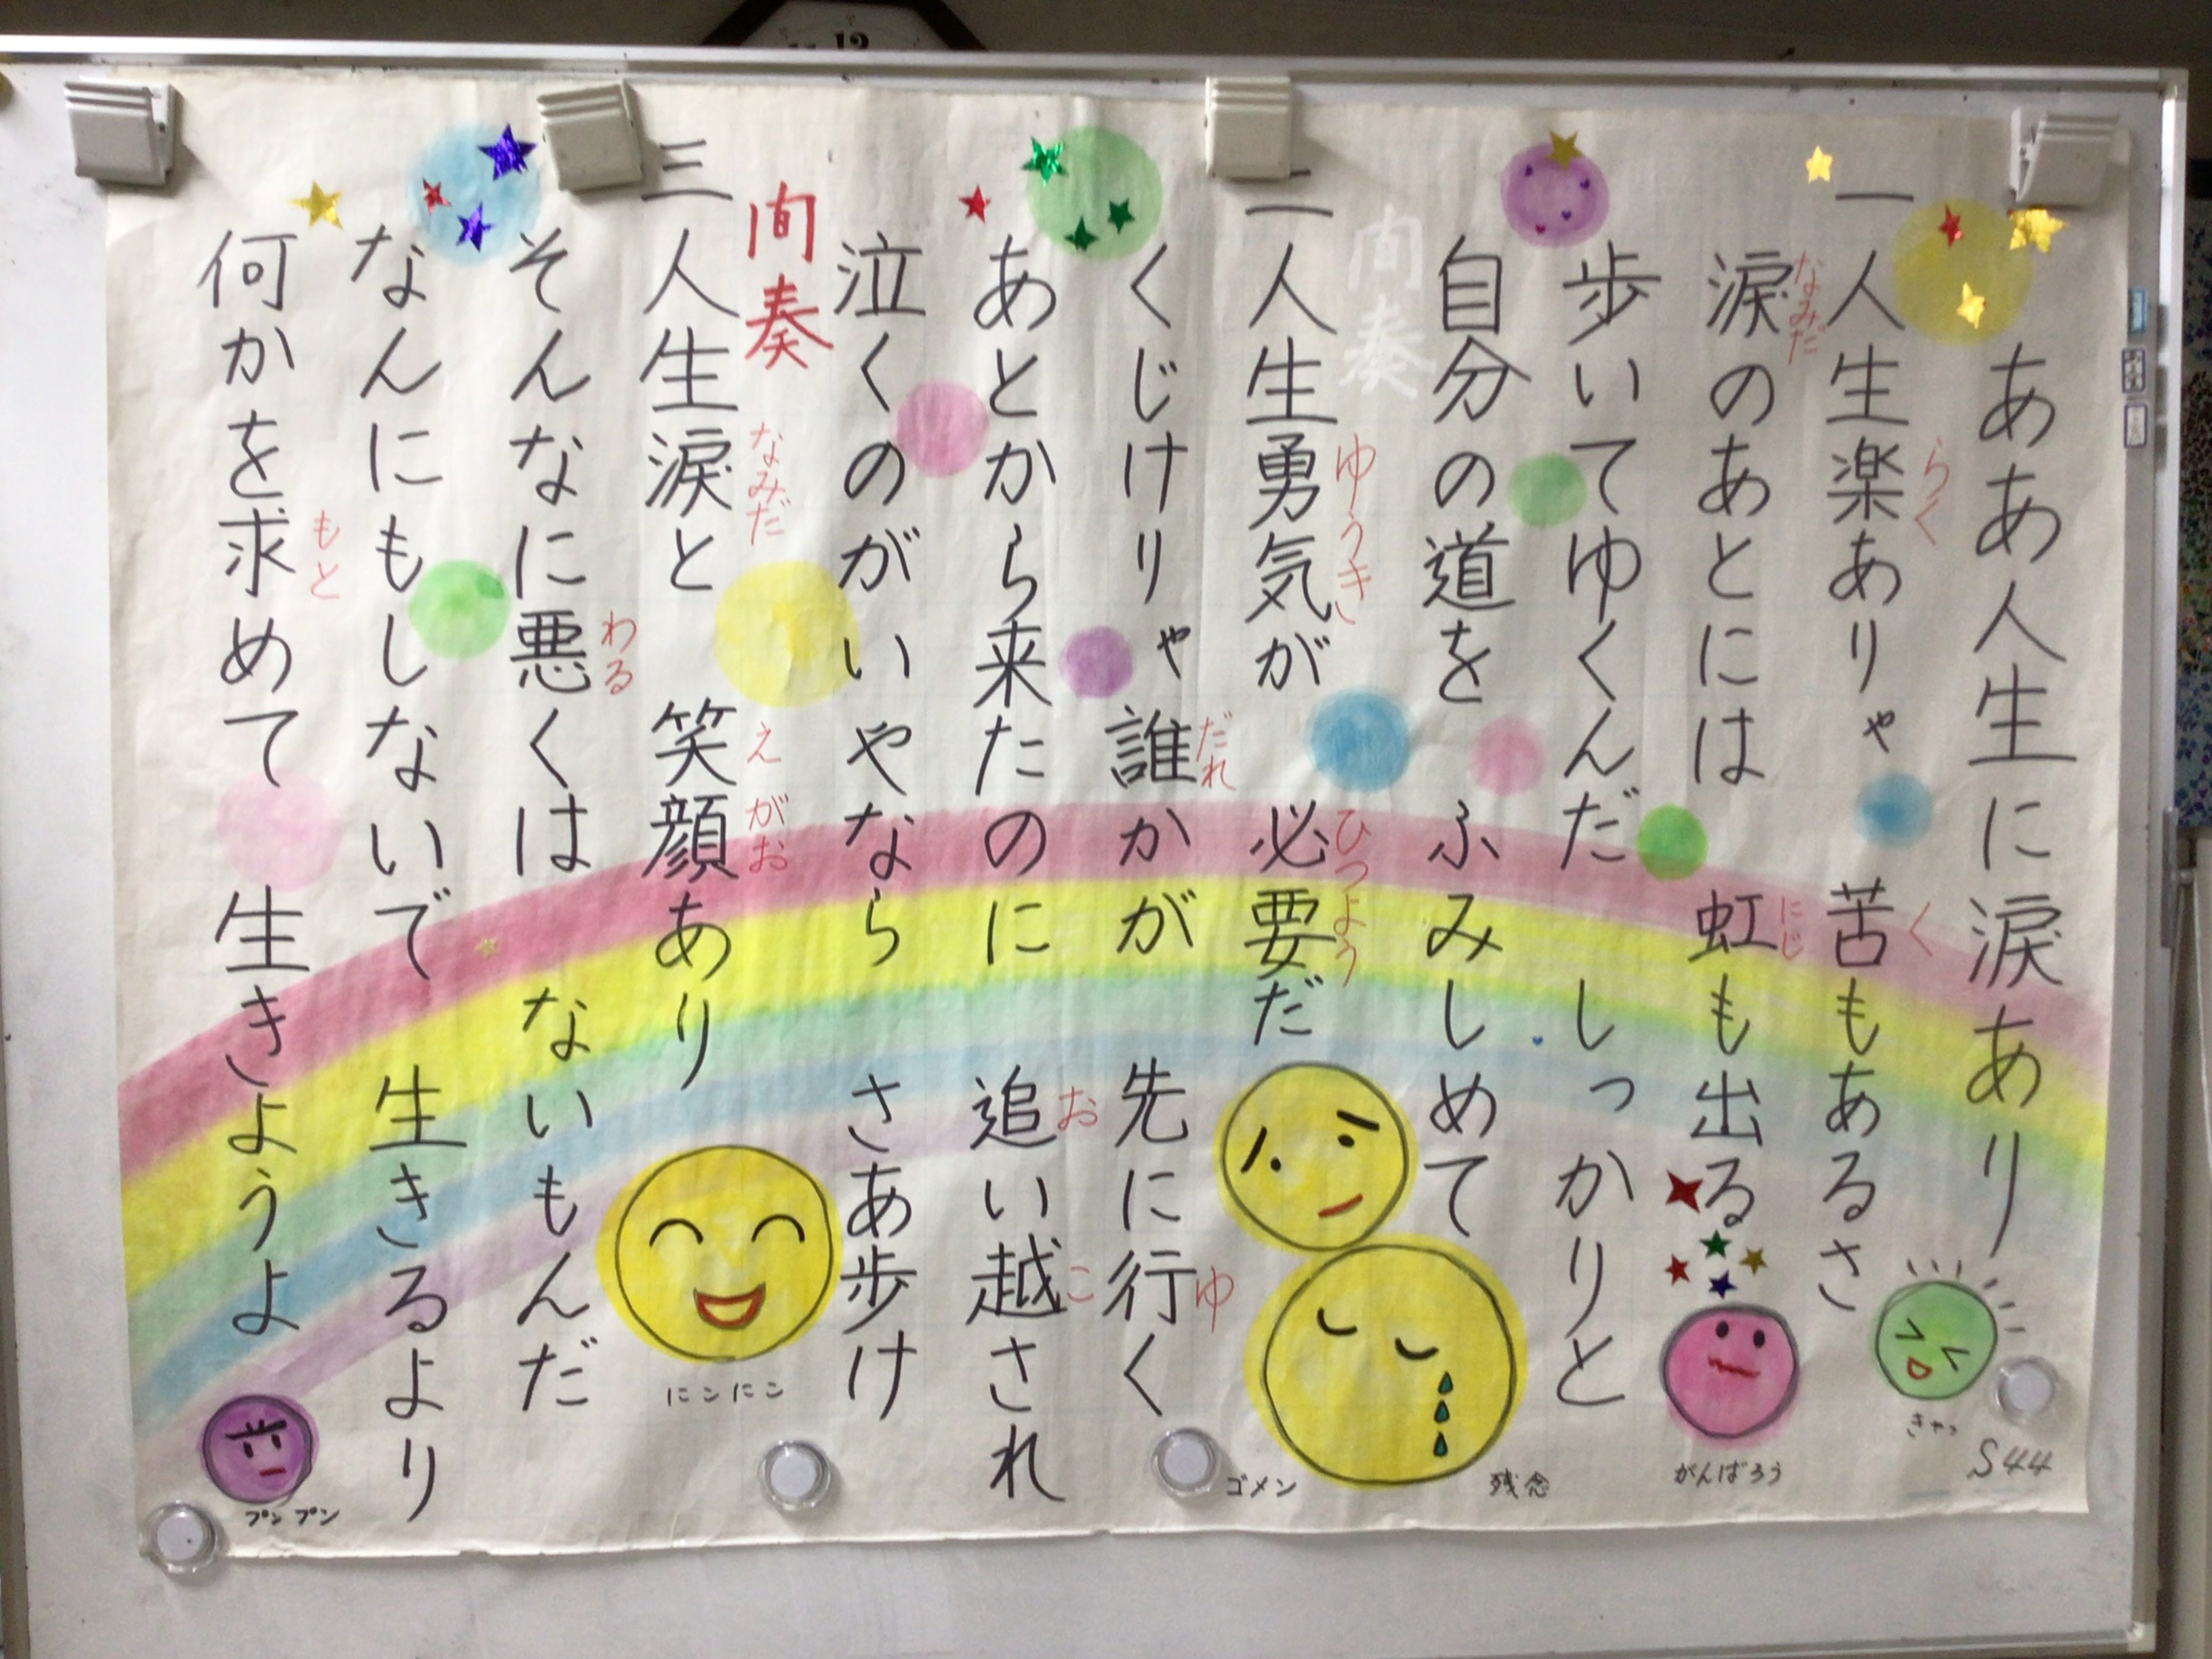 ああ人生に涙あり
一 人生楽ありゃ 苦もあるさ
涙のあとには 虹も出る
歩いてゆくんだ しっかりと
自分の道を ふみしめて
間奏
二 人生勇気が 必要だ
くじけりゃ 誰かが 先に行く
あとから来たのに 追い越され
泣くのがいやなら さあ歩け
間奏
三 人生涙と 笑顔あり
そんなに悪くは ないもんだ
なんにもしないで 生きるより
何かを求めて 生きようよ
なみだ
らく
く
にじ
ゆうき
ひつよう
だれ
ゆ
お
こ
なみだ
えがお
わる
もと
きゃっ
S44
がんばろう
残念
ゴメン
にこにこ
プンプン
12